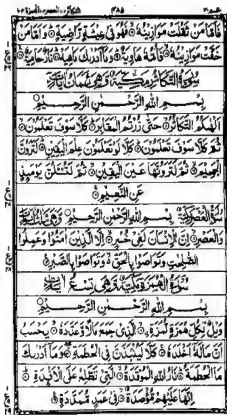 فَاَمَّا مَنْ ثَقُلَتْ مَوَازِيْنُهٗ ۝ فَهُوَ فِيْ عِيْشَةٍ رَّاضِيَةٍ ۝ وَاَمَّا مَنْ
خَفَّتْ مَوَازِيْنُهٗ ۝ فَاُمُّهٗ هَاوِيَةٌ ۝ وَمَآ اَدْرٰىكَ مَاهِيَهْ ۝ نَارٌ حَامِيَةٌ ۝
سُوْرَةُ التَّكَاثُرِ مَكِّيَّةٌ وَّهِيَ ثَمَانُ اٰيَاتٍ
بِسْمِ اللّٰهِ الرَّحْمٰنِ الرَّحِيْمِ
اَلْهٰىكُمُ التَّكَاثُرُ ۝ حَتّٰى زُرْتُمُ الْمَقَابِرَ ۝ كَلَّا سَوْفَ تَعْلَمُوْنَ ۝
ثُمَّ كَلَّا سَوْفَ تَعْلَمُوْنَ ۝ كَلَّا لَوْ تَعْلَمُوْنَ عِلْمَ الْيَقِيْنِ ۝ لَتَرَوُنَّ
الْجَحِيْمَ ۝ ثُمَّ لَتَرَوُنَّهَا عَيْنَ الْيَقِيْنِ ۝ ثُمَّ لَتُسْـَٔلُنَّ يَوْمَىِٕذٍ
عَنِ النَّعِيْمِ ۝
بِسْمِ اللّٰهِ الرَّحْمٰنِ الرَّحِيْمِ
وَالْعَصْرِ ۝ اِنَّ الْاِنْسَانَ لَفِيْ خُسْرٍ ۝ اِلَّا الَّذِيْنَ اٰمَنُوْا وَعَمِلُوا
الصّٰلِحٰتِ وَتَوَاصَوْا بِالْحَقِّ ۝ وَتَوَاصَوْا بِالصَّبْرِ ۝
سُوْرَةُ الْهُمَزَةِ مَكِّيَّةٌ وَّهِيَ تِسْعُ اٰيَاتٍ
بِسْمِ اللّٰهِ الرَّحْمٰنِ الرَّحِيْمِ
وَيْلٌ لِّكُلِّ هُمَزَةٍ لُّمَزَةٍ ۝ الَّذِيْ جَمَعَ مَالًا وَّعَدَّدَهٗ ۝ يَحْسَبُ
اَنَّ مَالَهٗٓ اَخْلَدَهٗ ۝ كَلَّا لَيُنْۢبَذَنَّ فِي الْحُطَمَةِ ۝ وَمَآ اَدْرٰىكَ
مَا الْحُطَمَةُ ۝ نَارُ اللّٰهِ الْمُوْقَدَةُ ۝ الَّتِيْ تَطَّلِعُ عَلَى الْاَفْـِٕدَةِ ۝
اِنَّهَا عَلَيْهِمْ مُّؤْصَدَةٌ ۝ فِيْ عَمَدٍ مُّمَدَّدَةٍ ۝